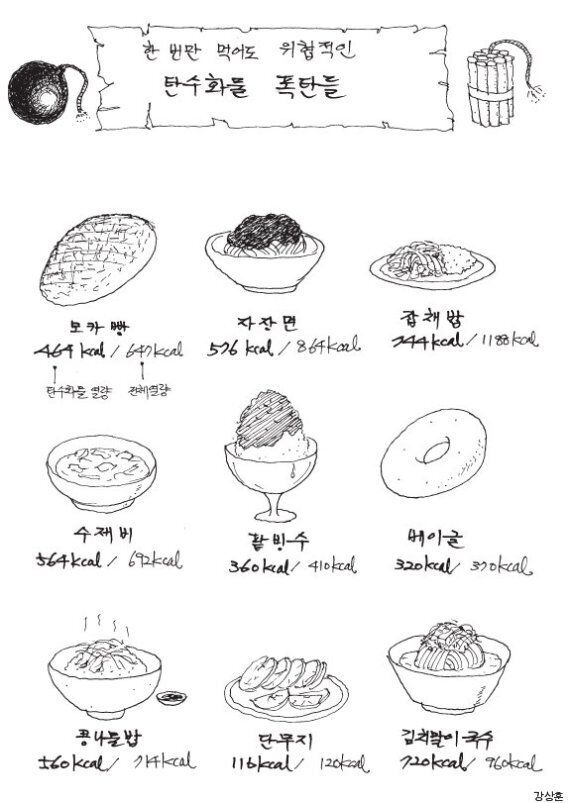 한 번만 먹어도 위협적인
탄수화물 폭탄들
모카빵
464 kcal / 647kcal
탄수화물 열량 전체열량
자장면
576 kcal / 864kcal
잡채밥
744kcal / 1188kcal
수제비
564kcal / 692kcal
팥빙수
360kcal / 410kcal
베이글
320kcal / 370kcal
콩나물밥
560kcal / 714kcal
단무지
116kcal / 120kcal
김치말이국수
720kcal / 960kcal
강상훈